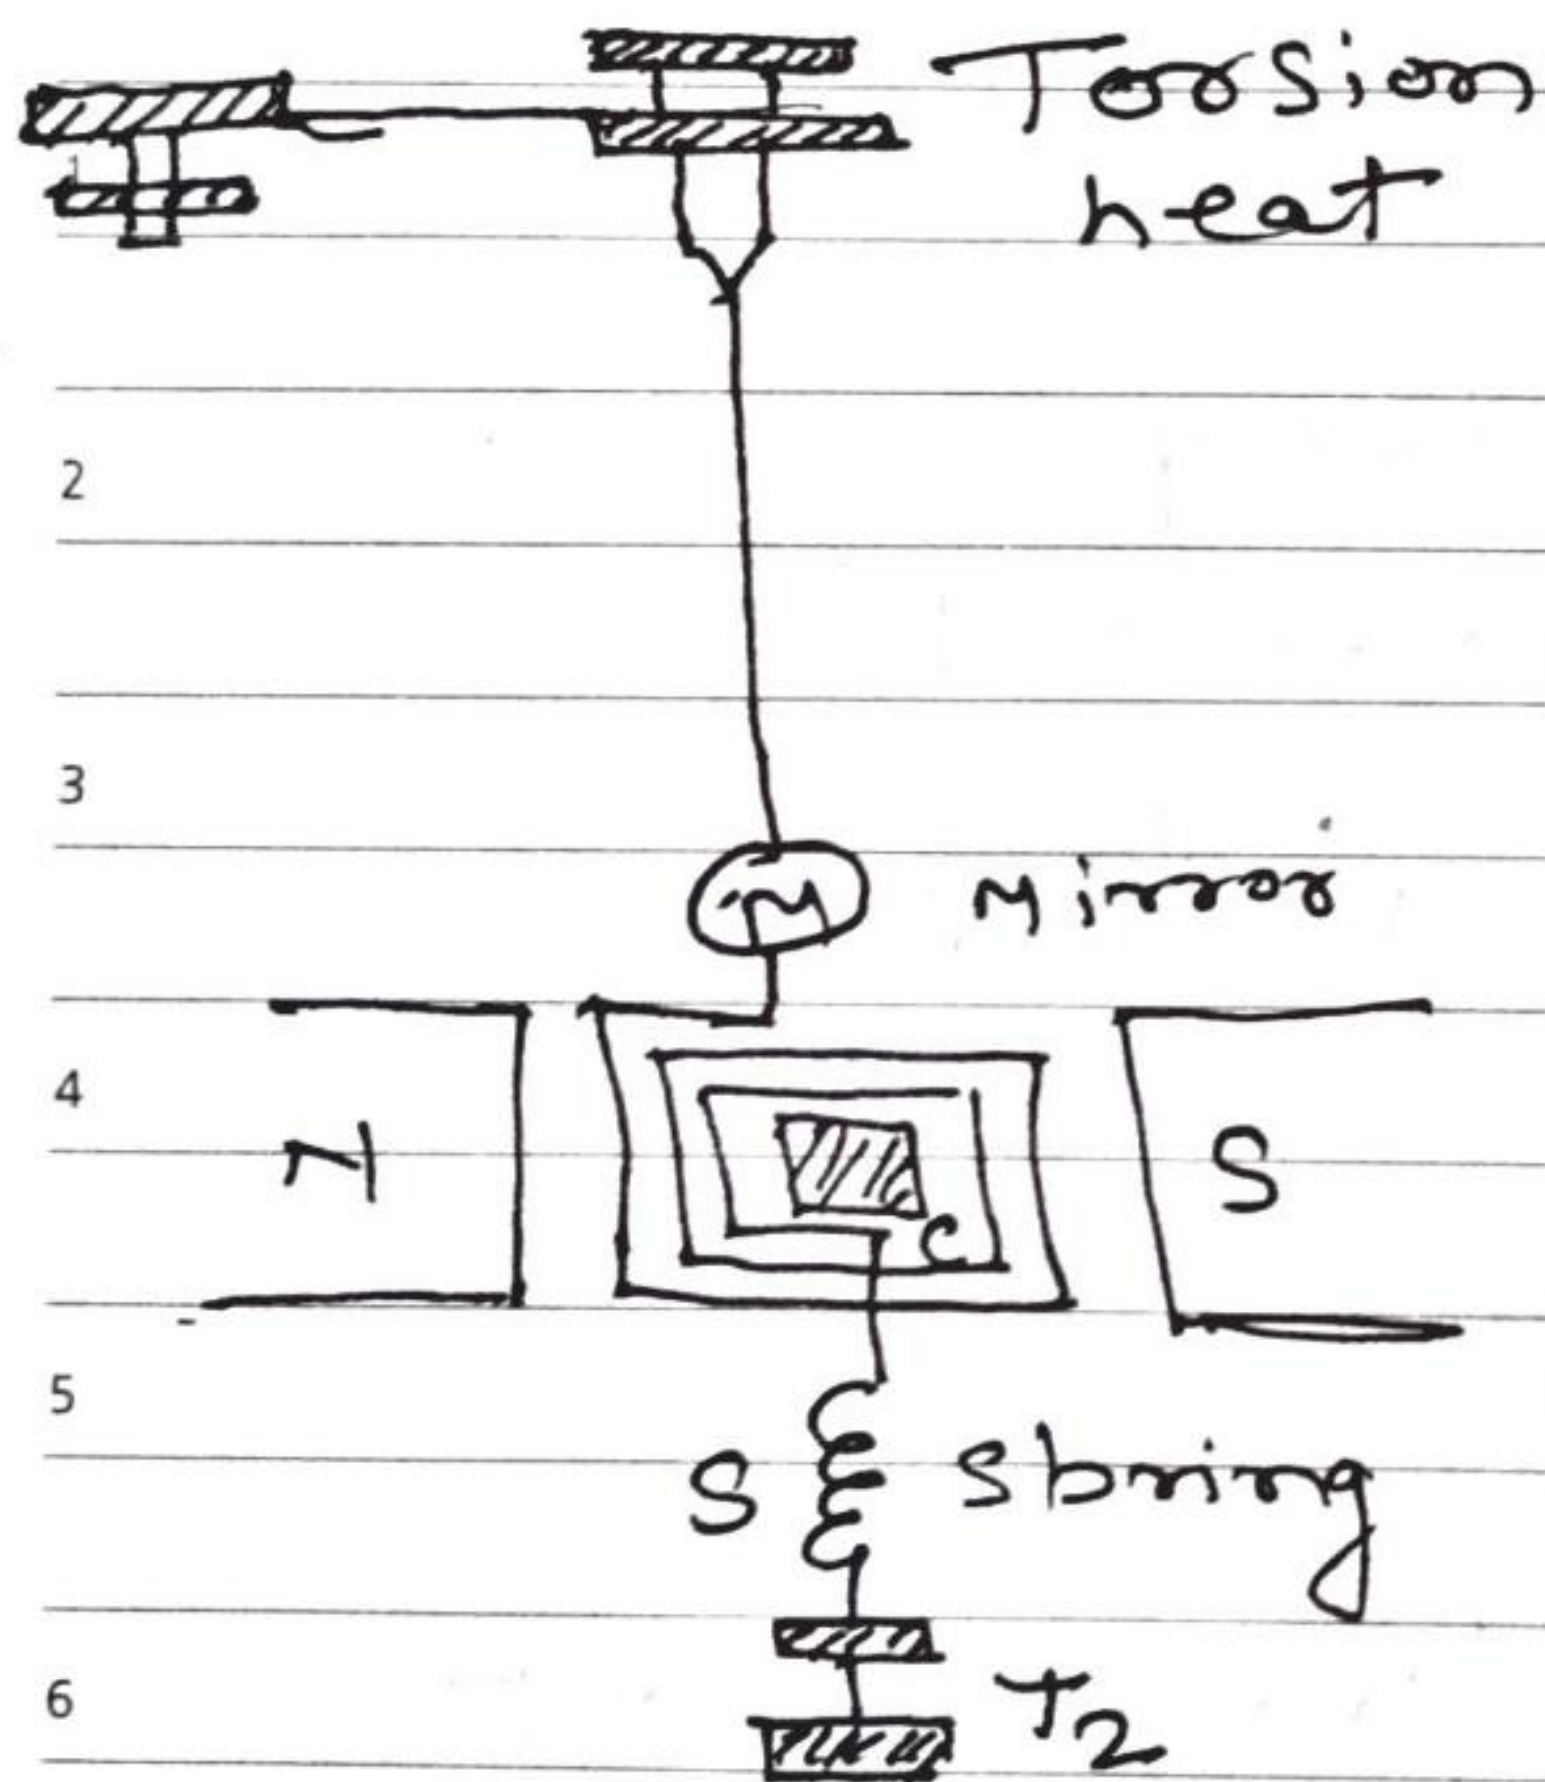 Torsion
heat
2
3
M Mirror
4
N S
C
5
S Sbring
6
T2